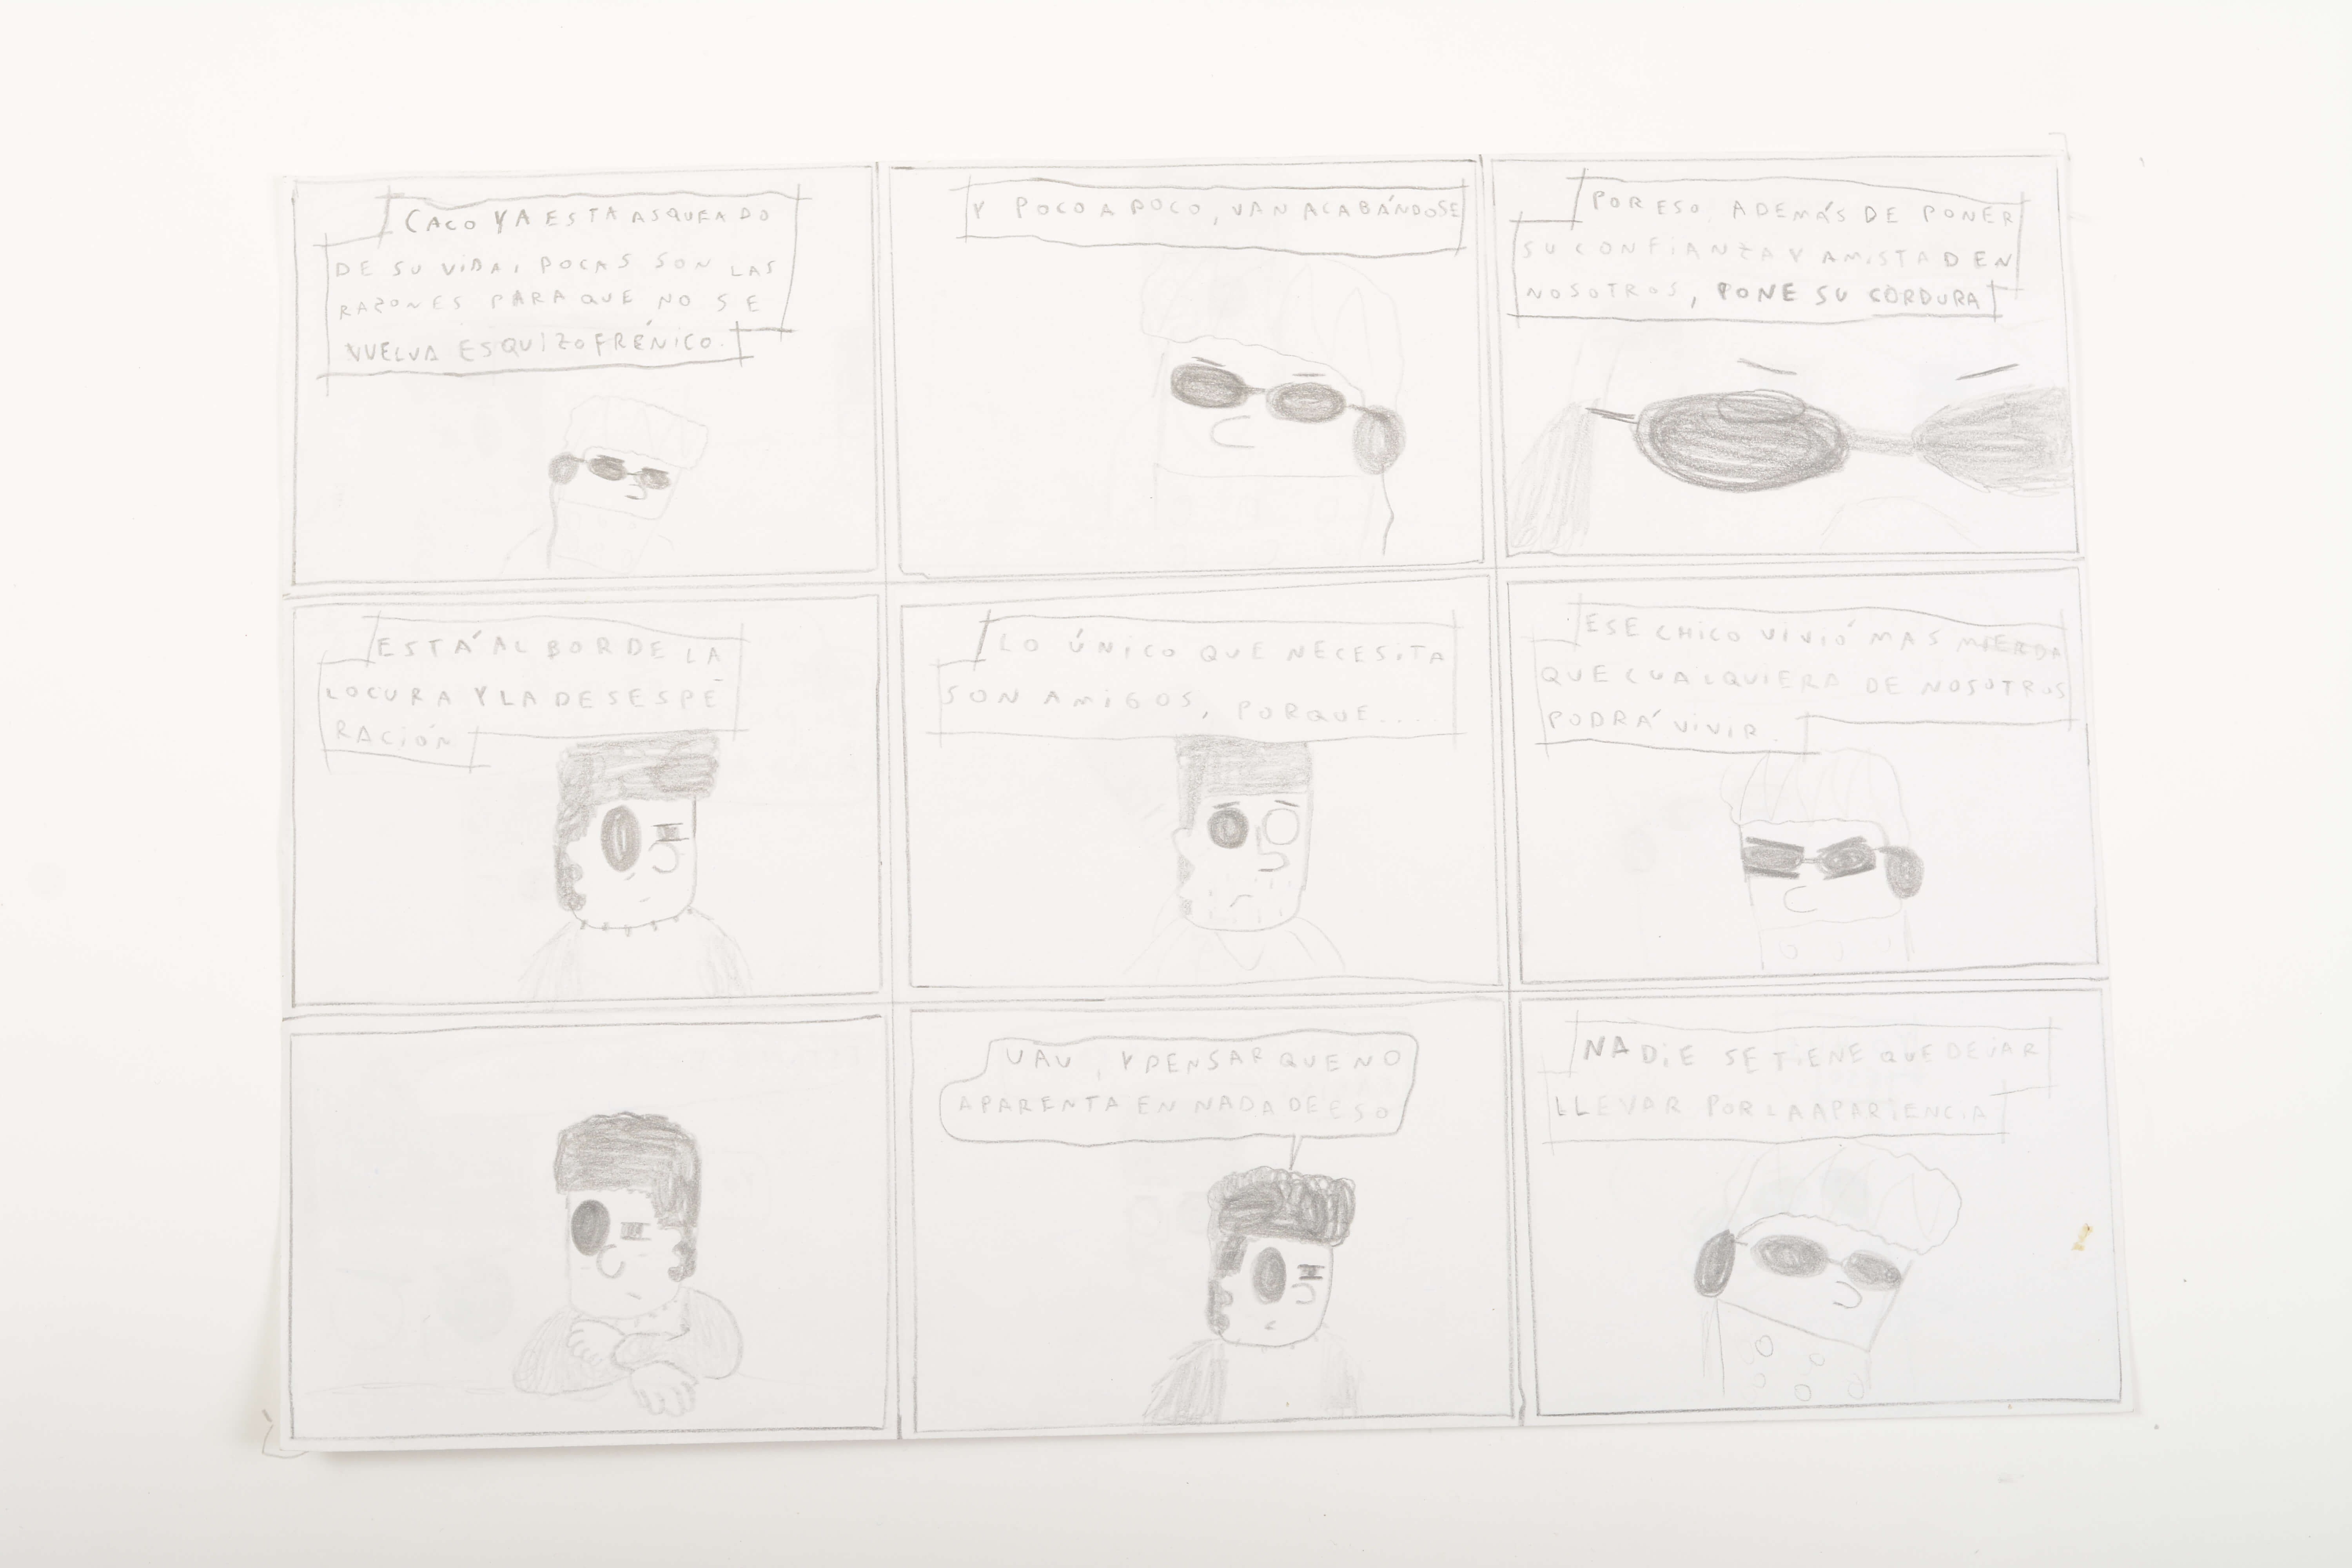 CACO YA ESTA ASQUEADO
DE SU VIDA, POCAS SON LAS
RAZONES PARA QUE NO SE
VUELVA ESQUIZOFRÉNICO.
Y POCO A POCO, VAN ACABÁNDOSE
POR ESO, ADEMÁS DE PONER
SU CONFIANZA Y AMISTAD EN
NOSOTROS, PONE SU CORDURA
ESTÁ AL BORDE LA
LOCURA Y LA DESESPE
RACIÓN
LO ÚNICO QUE NECESITA
SON AMIGOS, PORQUE....
ESE CHICO VIVIÓ MAS MIERDA
QUE CUALQUIERA DE NOSOTROS
PODRÁ VIVIR.
UAU, Y PENSAR QUE NO
APARENTA EN NADA DE ESO
NADIE SE TIENE QUE DEJAR
LLEVAR POR LA APARIENCIA